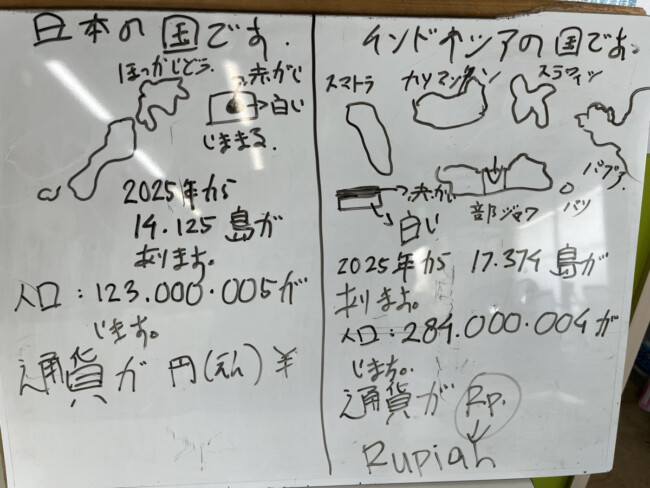 日本の国です.
ほっかじどう.
赤がじ
白い
じままる.
2025年から
14.125 島が
あります。
人口:123.000.005が
じます。
通貨が 円(えん) ¥
インドネシアの国です。
スマトラ
カリマンタン
スラウィシ
パプア.
赤がじ
白い
部ジャワ
バリ
2025年から 17.374 島が
あります。
人口:284.000.004が
じます。
通貨が Rp.
Rupiah